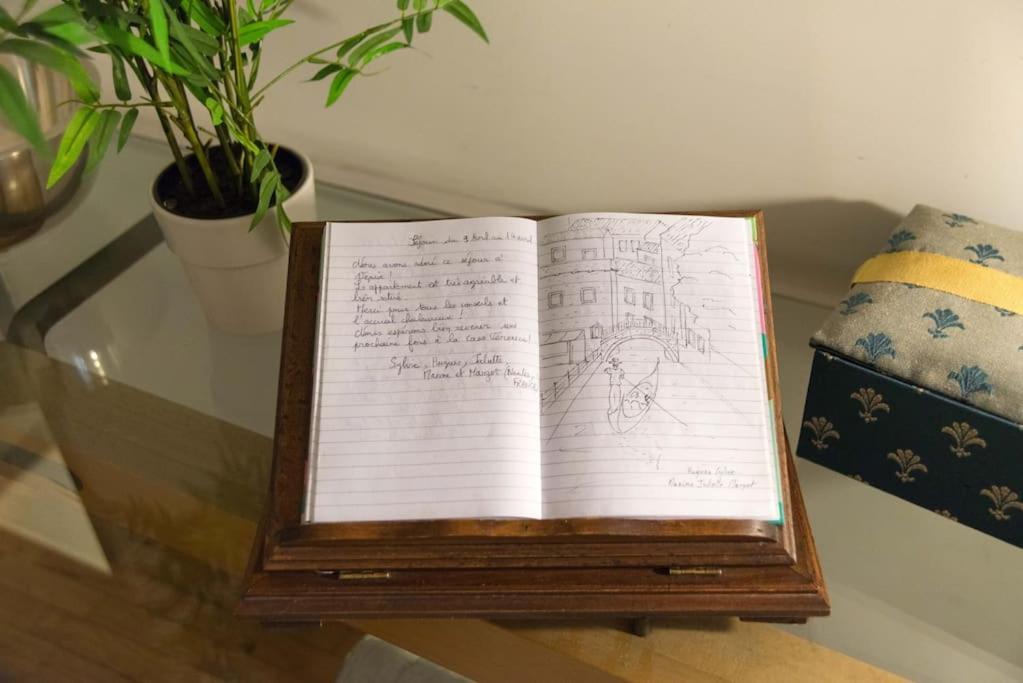 Séjour du 9 Avril au 14 avril
Nous avons adoré ce séjour à
Venise !
L'appartement est très agréable et
bien situé.
Merci pour tous les conseils et
l'accueil chaleureux !
Nous espérons bien revenir une
prochaine fois à la Casa
Sylvie, Hugues, Juliette,
Maxime et Margot (Nantes,
FRANCE
Hugues Sylvie
Maxime Juliette Margot